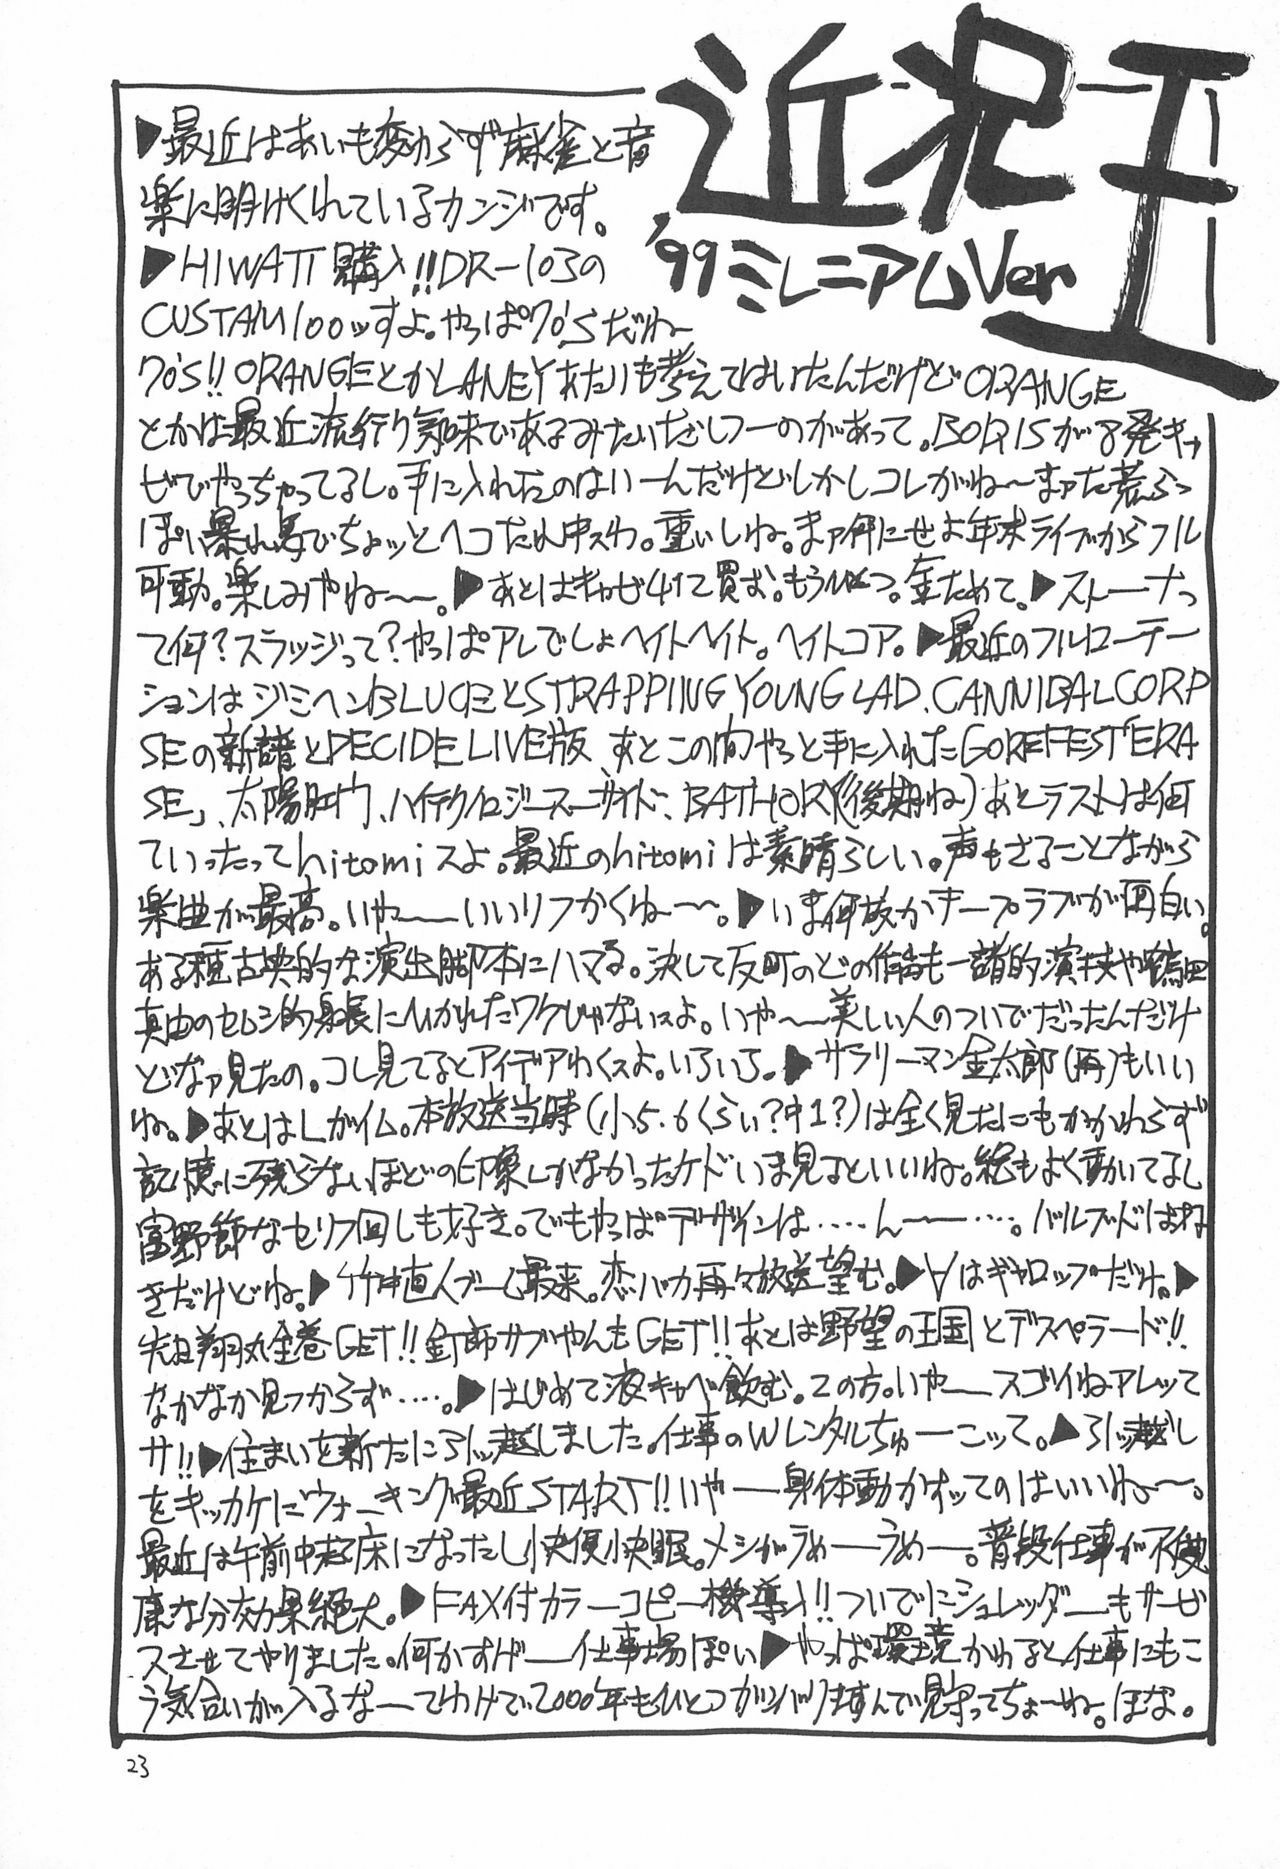 近況王
'99ミレニアムVer
▶最近はあいも変わらず麻雀と音
楽に明けくれているカンジです。
▶HIWATT購入!!DR-103の
CUSTAM100ッすよ。やっぱ70'Sだね〜
70'S!!ORANGEとかLANEYあたりも考えてはいたんだけどORANGE
とかは最近流行り気味であるみたいだしフーのがあって。BORISが8発キャ
ビでやっちゃってるし。手に入れたのはいーんだけどしかしコレがね〜まァた荒らっ
ぽい暴れ馬でちょッとヘコたれ中スわ。重いしね。まァ何にせよ年末ライブからフル
可動。楽しみやね〜。▶あとはキャビ4ケて買む。もうひとつ。金ためて。▶ストーナっ
て何?スラッジって?やっぱアレでしょヘイトヘイト。ヘイトコア。▶最近のフルローテー
ションはジミヘンBLUCEとSTRAPPING YOUNG LAD、CANNIBAL CORP
SEの新譜とDECIDE LIVE版 あとこの間やっと手に入れたGOREFEST「ERA
SE」、太陽肛門、ハイテクノロジースーサイド、BATHORY(後期ね)あとラストは何
ていったってhitomiスよ。最近のhitomiは素晴らしい。声もさることながら
楽曲が最高。いや〜いいリフかくね〜。▶いま何故かオープラブが面白い。
ある種古典的な演出脚本にハマる。決して反町のどの作品も一諸的演技や鶴田
真由のセムシ的身長にひかれたワケじゃないスよ。いや〜美しい人のついでだったんだけ
どなァ見たの。コレ見てるとアイデアわくスよ。いろいろ。▶サラリーマン金太郎(再)もいい
ね。▶あとはLガイム。本放送当時(小5.6くらい?中1?)は全く見たにもかかわらず
記憶に残らないほどの印象しかなかったケドいま見るといいね。絵もよく動いてるし
富野節なセリフ回しも好き。でもやっぱデザインは……ん〜……。バルブドはねす
きだけどね。▶竹中直人ブーム最来。恋バカ再々放送望む。▶∀はギャロップだね。▶
先日翔丸全巻GET!!釘師サブやんもGET!!あとは野望の王国とデスペラード!!
なかなか見つからず……。▶はじめて液キャベ飲む。2の方。いや〜スゴイねアレッて
サ!!▶住まいを新たに引ッ越しました。仕事のWレンタルちゅーこって。▶引ッ越し
をキッカケにウォーキング最近START!!いや〜身体動かすッてのはいいね〜。
最近は午前中起床になったし快便快眠。メシがうめーうめー。普段仕事が不健
康な分効果絶大。▶FAX付カラーコピー機導入!!ついでにシュレッダーもサービ
スさせてやりました。何かすげー仕事場ぽい▶やっぱ環境かわると仕事にもこ
う気合いが入るなーてわけで2000年もひとつガンバりますんで見守ってちょーね。ほな。
23